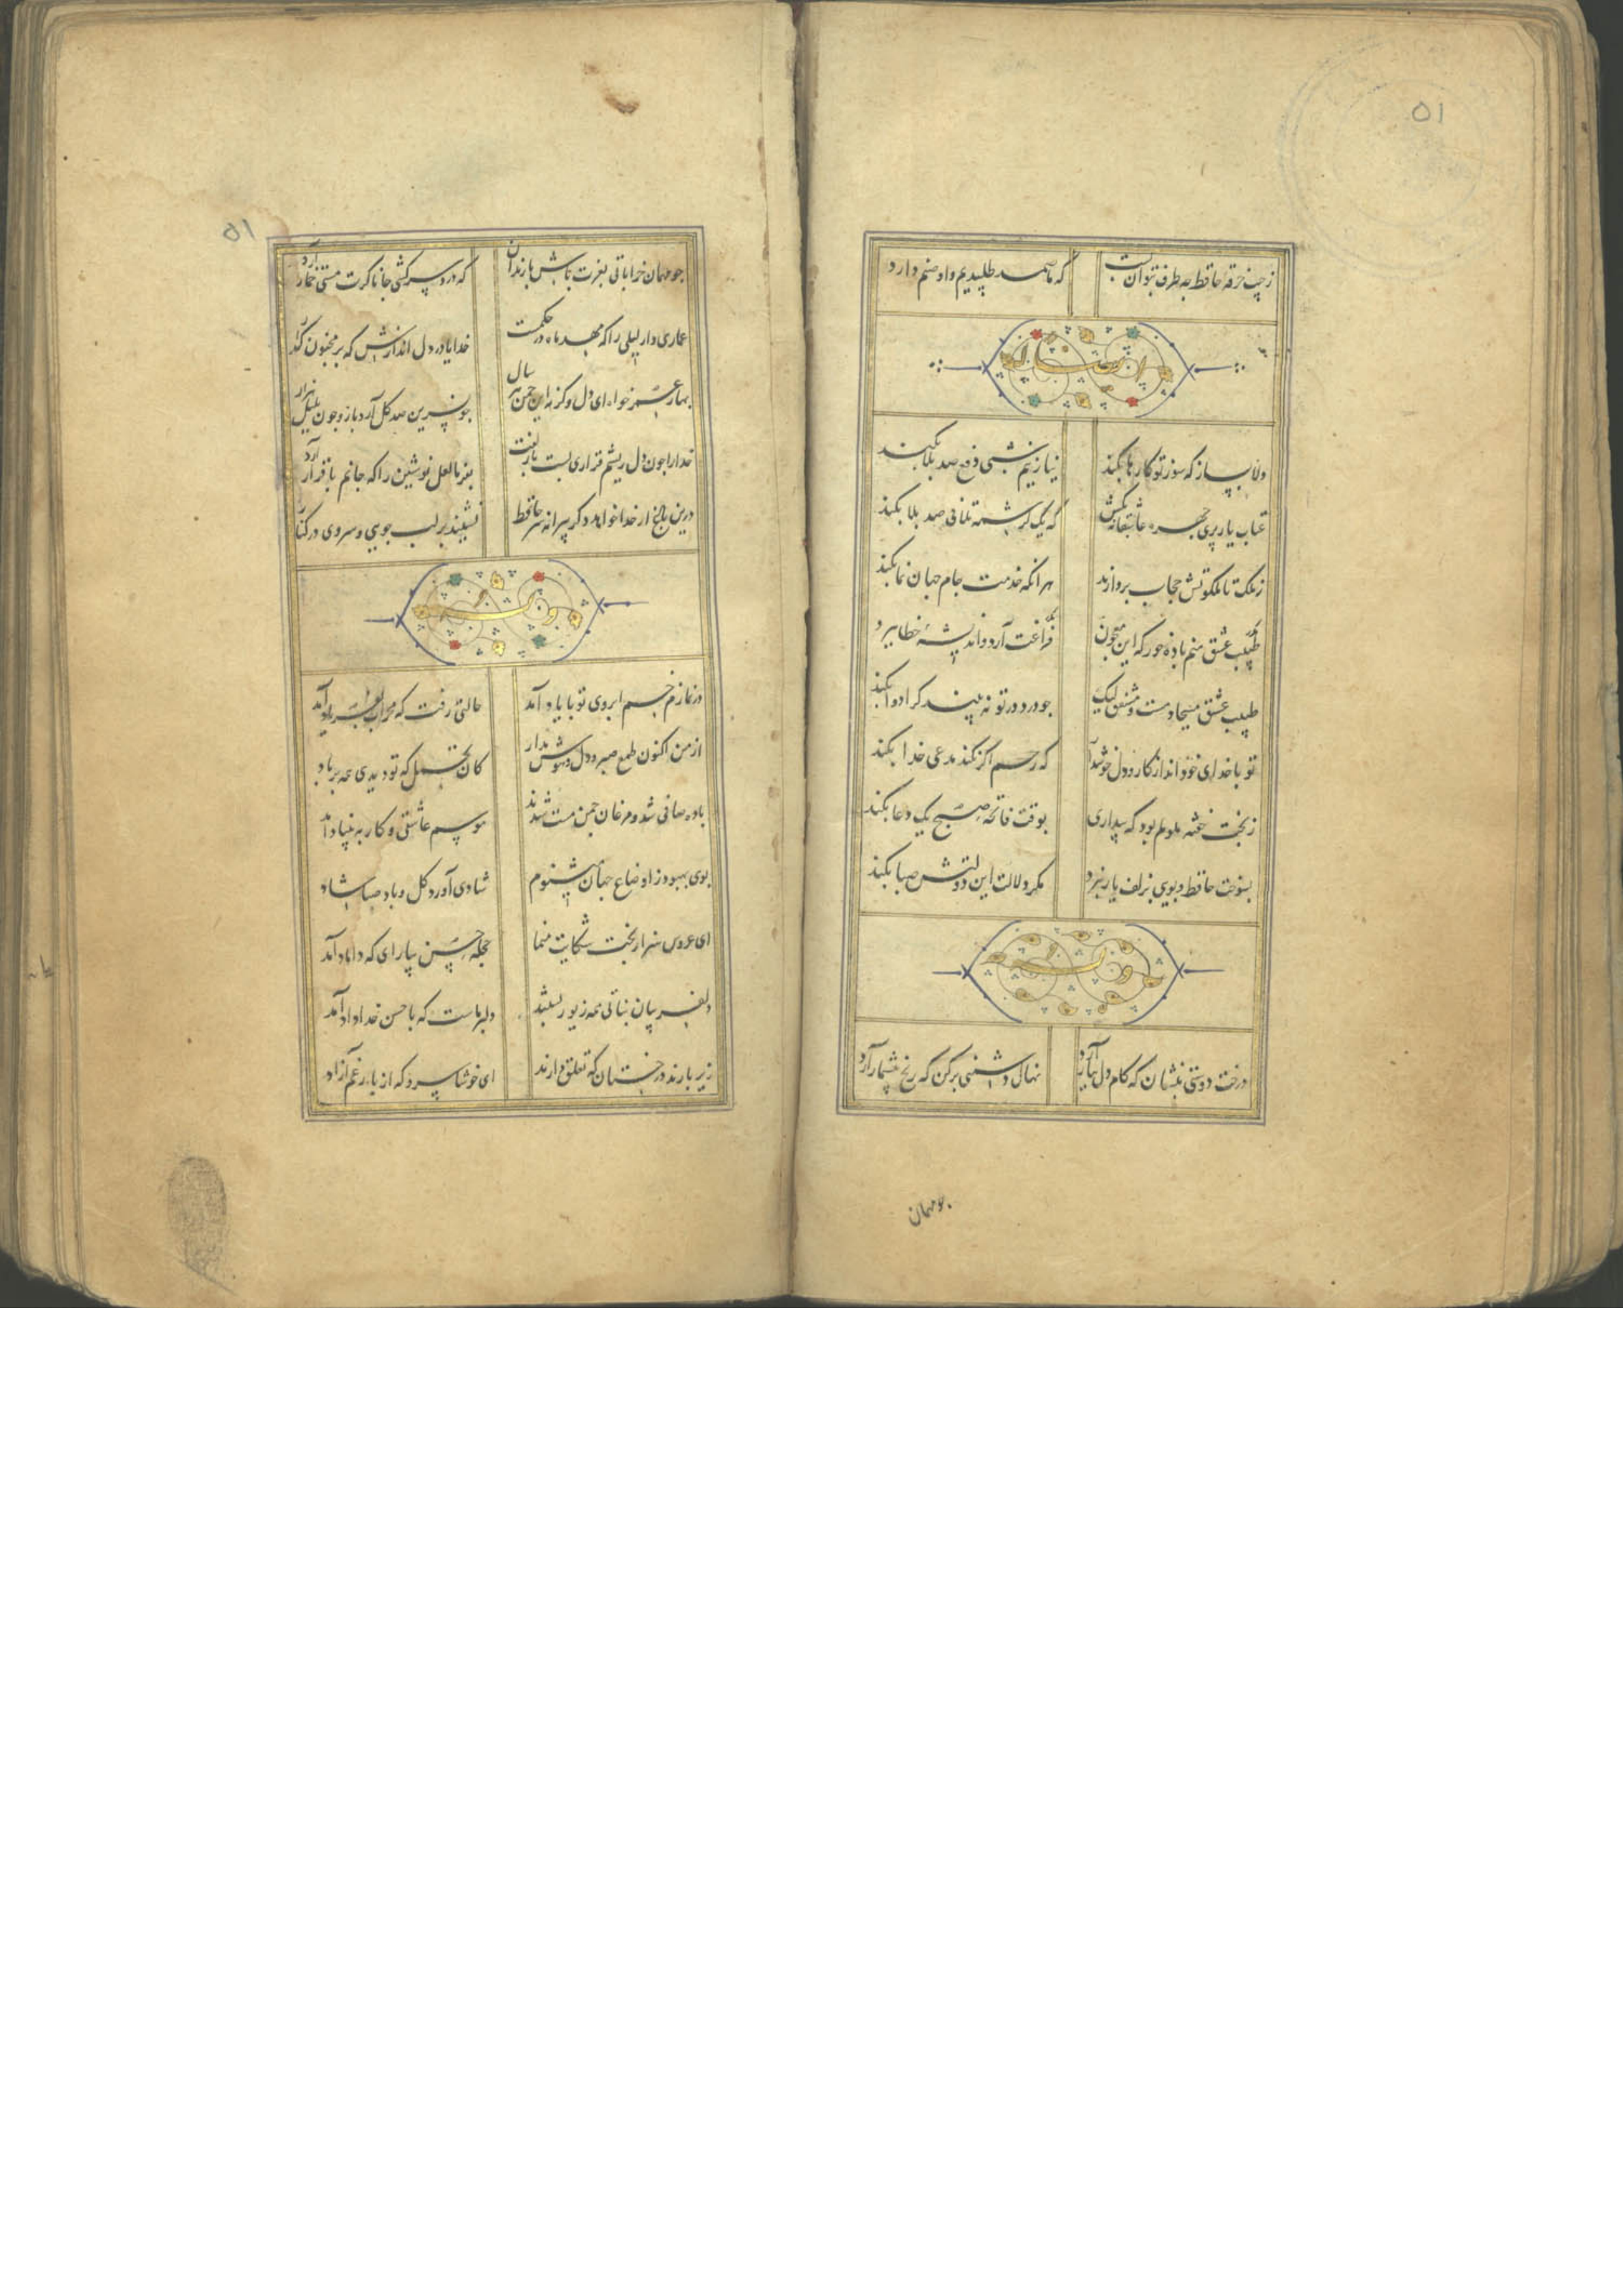 ۵۱
ز جیب خرقه حافظ چه طرف بتوان بست که ما صمد طلبیدیم و او صنم دارد
ایضا له
دلا بساز که سوز تو کارها بکند نیاز نیم شبی دفع صد بلا بکند
عتاب یار پری چهره عاشقانه بکش که یک کرشمه تلافی صد بلا بکند
ز ملک تا ملکوتش حجاب بردارند هر انکه خدمت جام جهان نما بکند
طبیب عشق منم باده خور که این معجون فراغت آرد و اندیشه خطا ببرد
طبیب عشق مسیحا دمست و مشفق لیک چو درد در تو نه بیند کرا دوا بکند
تو با خدای خود انداز کار و دل خوشدار که رحم اکر نکند مدعی خدا بکند
ز بخت خفته ملولم بود که بیداری بوقت فاتحه صبح یک دعا بکند
بسوخت حافظ و بویی بزلف یار نبرد مکر دلالت این دولتش صبا بکند
وله
درخت دوستی بنشان که کام دل ببار آرد نهال دشمنی برکن که رنج بیشمار آرد
چو مهمان
۵۱
چو مهمان خراباتی بعزت باش با رندان که درد سر کشی جانا کرت مستی خمار آرد
عماری دار لیلی را که مهد ماه در حکمست خدایا در دل اندازش که بر مجنون کذار
بهار عمر خواه ای دل وکرنه این چمن هر سال چو نسرین صد کل آرد بار و چون بلبل هزار
خدا را چون دل ریشم قراری بست با زلفت بفرما لعل نوشین را که جانم با قرار آرد
درین باغ ار خدا خواهد دکر پیرانه سر حافظ نشیند بر لب جویی و سروی در کنار
وله
در نمازم خم ابروی تو با یاد آمد حالتی رفت که محراب بفریاد آمد
از من اکنون طمع صبر و دل و هوش مدار کان تحمل که تو دیدی همه بر باد
باده صافی شد و مرغان چمن مست شدند موسم عاشقی و کار به بنیاد آمد
بوی بهبود ز اوضاع جهان میشنوم شادی آورد کل و باد صبا شاد
ای عروس هنر از بخت شکایت منما حجله حسن بیارای که داماد آمد
دلفریبان نباتی همه زیور بستند دلبر ماست که با حسن خداداد آمد
زیر بارند درختان که تعلق دارند ای خوشا سرو که از بار غم آزاد